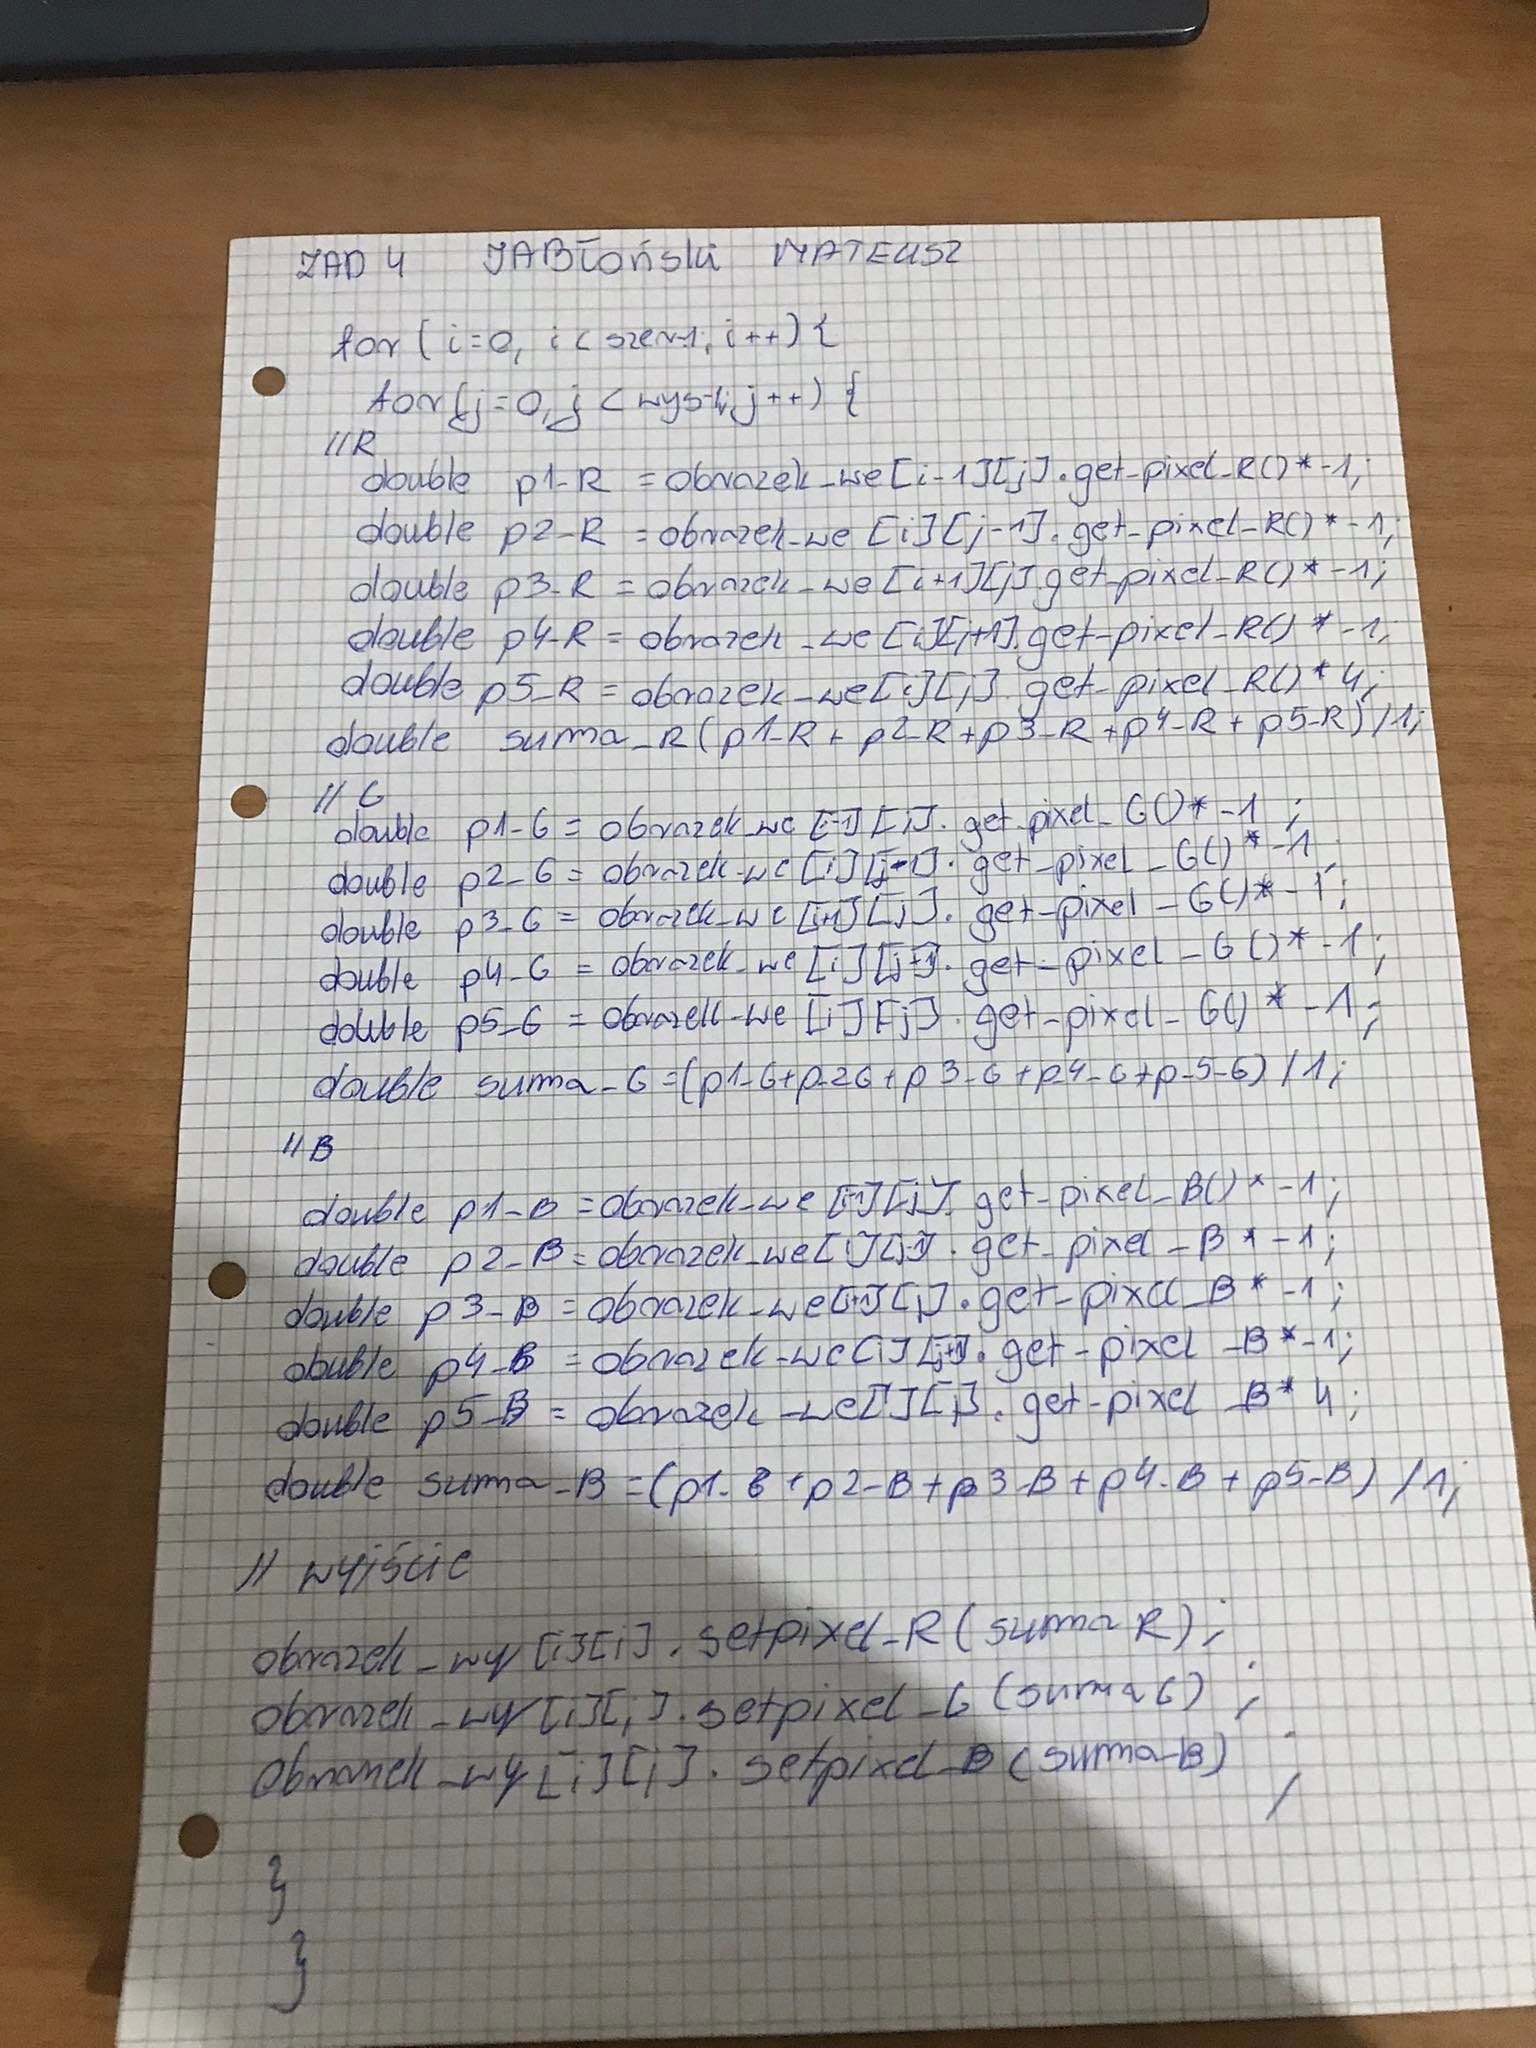 ZAD 4 JABłoński MATEUSZ
for (i=0, i < szer-1, i++) {
for (j=0, j < wys-1, j++) {
//R
double p1-R = obrazek_we[i-1][j].get-pixel-R()*-1;
double p2-R = obrazek_we [i][j-1].get-pixel-R()*-1;
double p3-R = obrazek_we[i+1][j].get-pixel-R()*-1;
double p4-R = obrazek_we[i][j+1].get-pixel-R()*-1;
double p5-R = obrazek_we[i][j].get-pixel-R()*4;
double suma-R(p1-R + p2-R + p3-R + p4-R + p5-R)/1;
// G
double p1-G = obrazek_we [i-1][j].get-pixel-G()*-1;
double p2-G = obrazek_we [i][j-1].get-pixel-G()*-1;
double p3-G = obrazek_we [i+1][j].get-pixel-G()*-1;
double p4-G = obrazek_we [i][j+1].get-pixel-G()*-1;
double p5-G = obrazek_we [i][j].get-pixel-G()*-1;
double suma-G = (p1-G+p-2G+p3-G+p4-G+p-5-G)/1;
//B
double p1-B = obrazek_we [i-1][j].get-pixel-B()*-1;
double p2-B = obrazek_we[i][j-1].get-pixel-B*-1;
double p3-B = obrazek_we[i+1][j].get-pixel-B*-1;
double p4-B = obrazek_we[i][j+1].get-pixel-B*-1;
double p5-B = obrazek_we[i][j].get-pixel-B*4;
double suma-B = (p1-B+p2-B+p3-B+p4-B+p5-B)/1;
// wyjście
obrazek_wy[i][j].setpixel-R(suma R);
obrazek_wy[i][j].setpixel-G(suma G);
obrazek_wy[i][j].setpixel-B(suma-B);
}
}